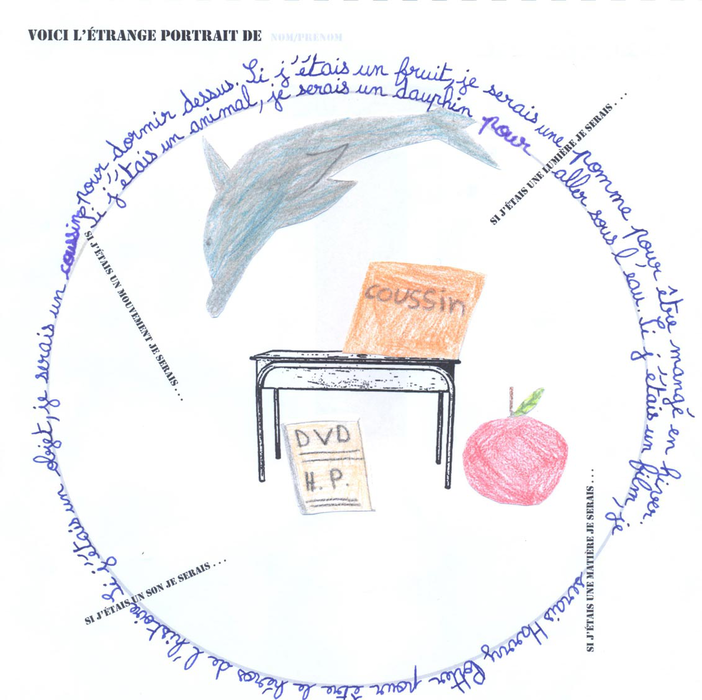 VOICI L'ÉTRANGE PORTRAIT DE NOM/PRENOM
Si j'étais un animal, je serais un dauphin pour aller sous l'eau. Si j'étais un film, je serais Harry Potter pour être le héros de l'histoire. Si j'étais un objet, je serais un coussin pour dormir dessus. Si j'étais un fruit, je serais une pomme pour être mangé en hiver.
SI J'ÉTAIS UNE LUMIÈRE JE SERAIS . . .
SI J'ÉTAIS UN MOUVEMENT JE SERAIS . . .
coussin
DVD
H.P.
SI J'ÉTAIS UN SON JE SERAIS . . .
SI J'ÉTAIS UNE MATIÈRE JE SERAIS . . .